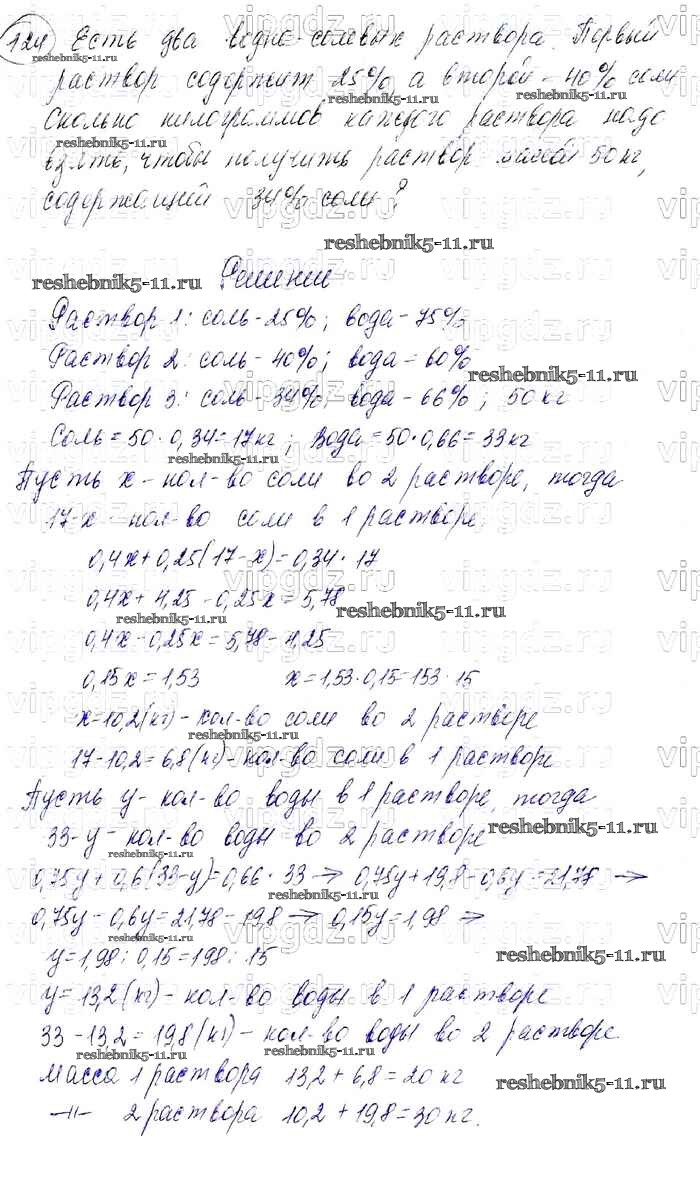 124 Есть два водно-солевых раствора. Первый
раствор содержит 25% а второй - 40% соли
Сколько килограммов каждого раствора надо
взять, чтобы получить раствор массой 50 кг,
содержащий 34% соли?
Решение
Раствор 1: соль - 25%; вода - 75%
Раствор 2: соль - 40%; вода - 60%
Раствор 3: соль - 34%, вода - 66%; 50 кг
Соль = 50 · 0,34 = 17 кг; Вода = 50 · 0,66 = 33 кг
Пусть x - кол-во соли во 2 растворе, тогда
17-x - кол-во соли в 1 растворе
0,4x + 0,25(17-x) = 0,34 · 17
0,4x + 4,25 - 0,25x = 5,78
0,4x - 0,25x = 5,78 - 4,25
0,15x = 1,53 x = 1,53 · 0,15 = 153 · 15
x = 10,2 (кг) - кол-во соли во 2 растворе
17 - 10,2 = 6,8 (кг) - кол-во соли в 1 растворе
Пусть y - кол-во воды в 1 растворе, тогда
33-y - кол-во воды во 2 растворе
0,75y + 0,6(33-y) = 0,66 · 33 → 0,75y + 19,8 - 0,6y = 21,78 →
0,75y - 0,6y = 21,78 - 19,8 → 0,15y = 1,98 →
y = 1,98 : 0,15 = 198 : 15
y = 13,2 (кг) - кол-во воды в 1 растворе
33 - 13,2 = 19,8 (кг) - кол-во воды во 2 растворе
Масса 1 раствора 13,2 + 6,8 = 20 кг
-//- 2 раствора 10,2 + 19,8 = 30 кг.
reshebnik5-11.ru
vipgdz.ru